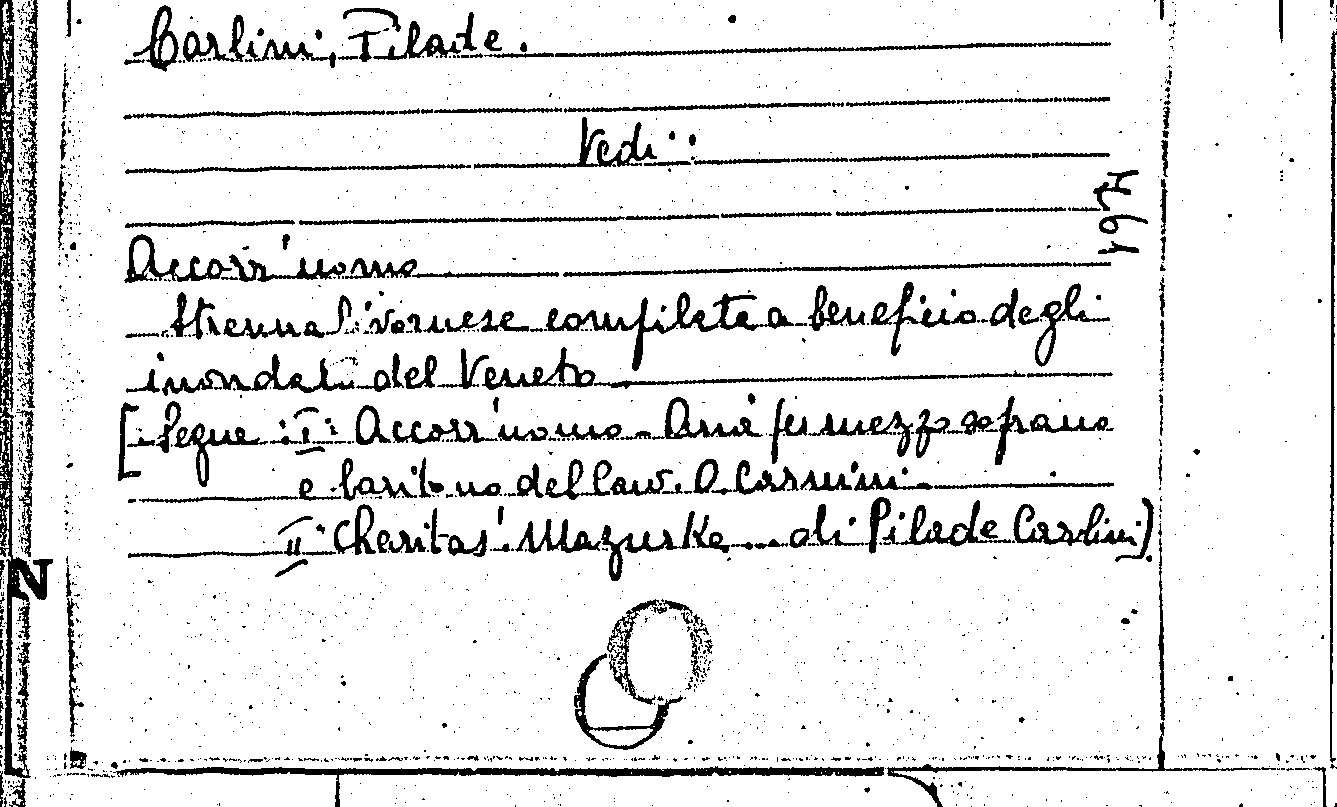 Carlini, Pilade.
Vedi:
Accorr'uomo
Strenna livornese compilata a beneficio degli
inondati del Veneto
[Segue: I: Accorr'uomo - Aria per mezzo soprano
e baritono del Cav. O. Carmini.
II: Charitas! Mazurka ... di Pilade Carlini)
N